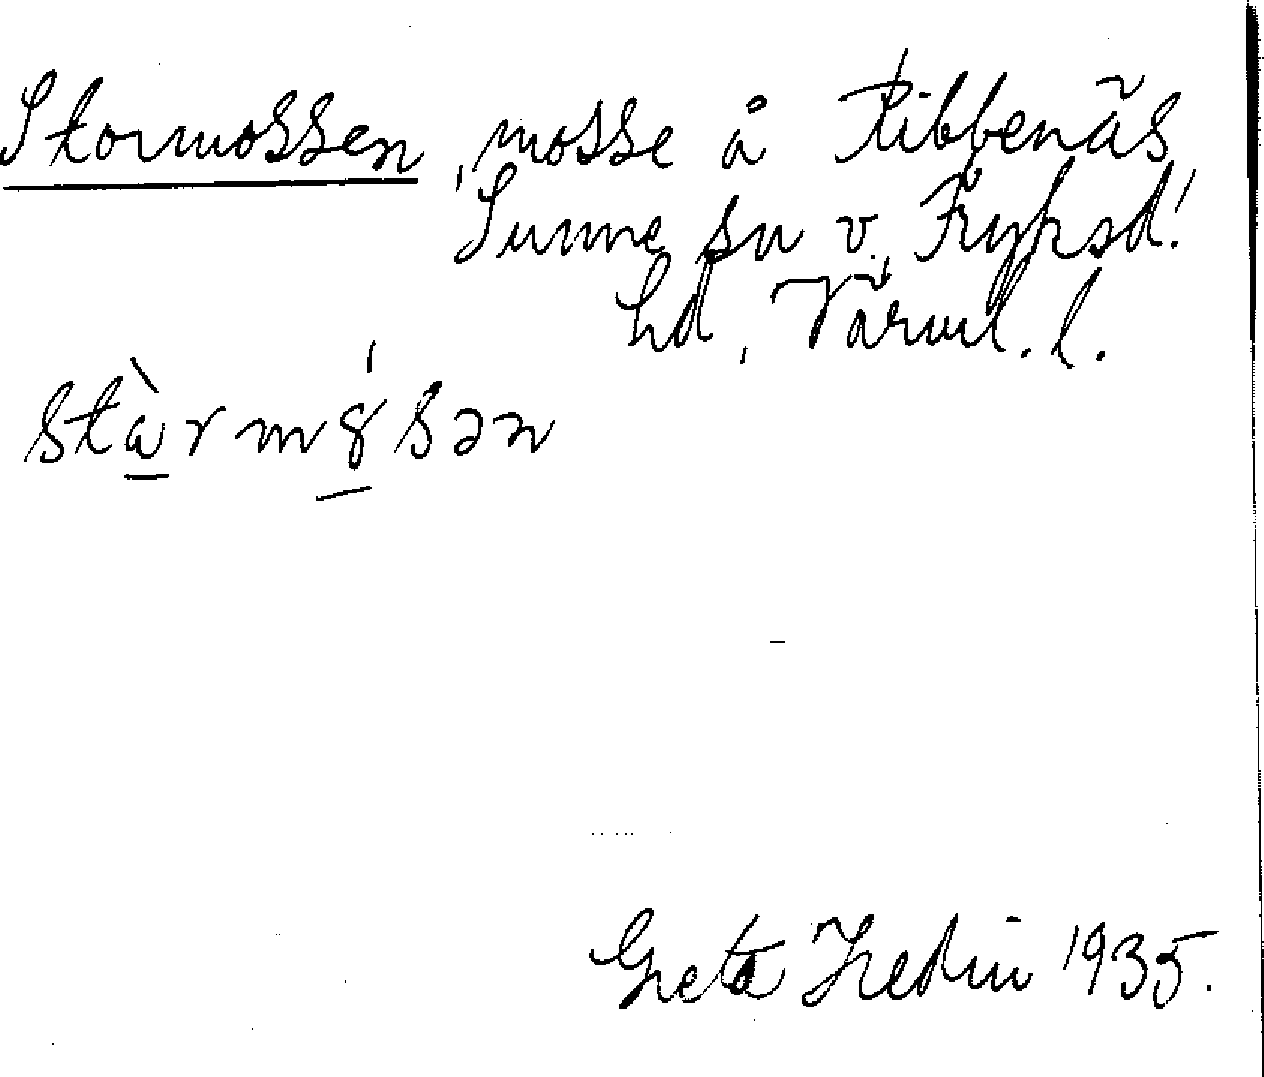 Stormossen, mosse å Ribbenäs
Sunne sn v. Fryksd.
hd, Värml. l.
stàrmǿsən
Greta Hedin 1935.